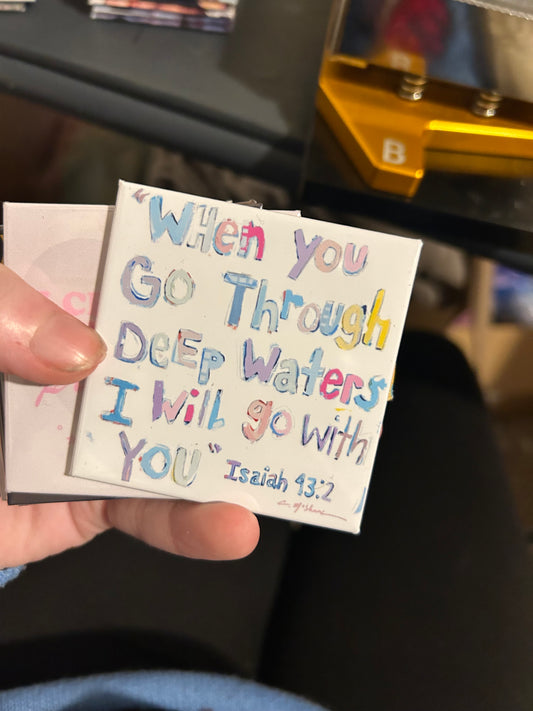 "When you
Go Through
Deep Waters
I will go with
You"
Isaiah 43:2
B